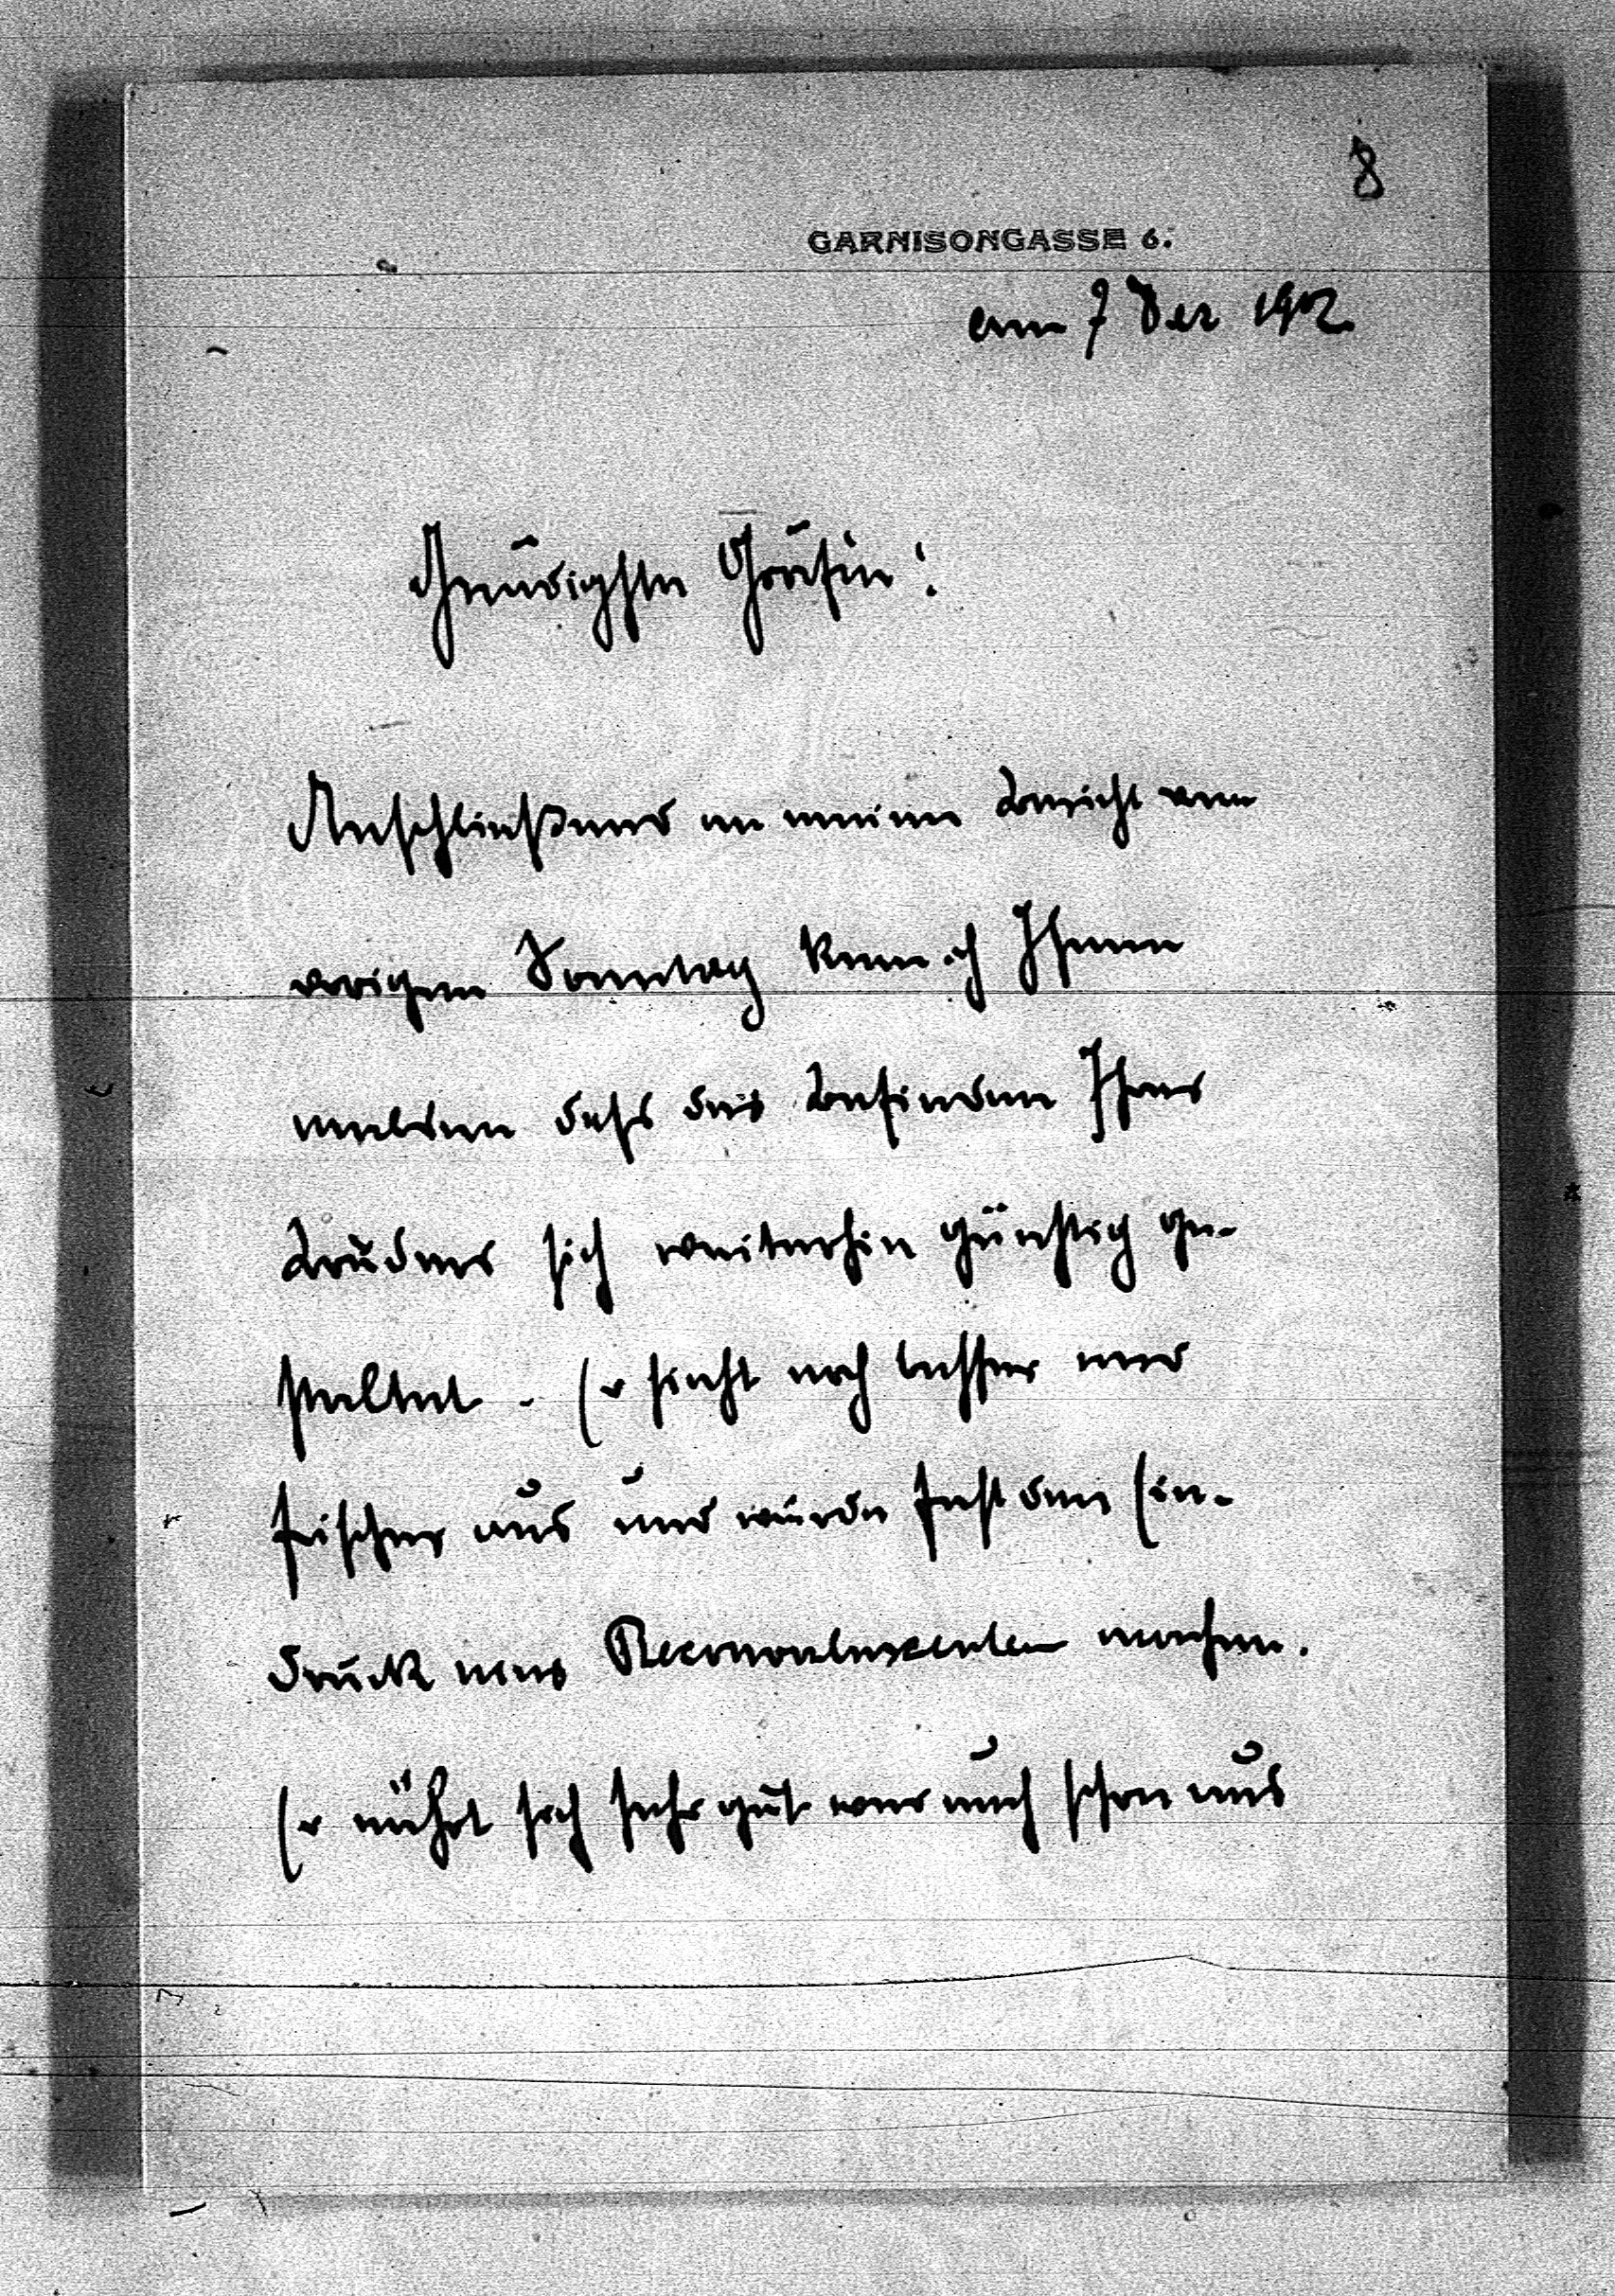 8
GARNISONGASSE 6.
am 7 Dez 1902.
Gnädigste Gräfin!
Anschließend an meinen Bericht vom
vorigen Sonntag kann ich Ihnen
melden dass das Befinden Ihres
Bruders sich weiterhin günstig ge-
staltet. Er sieht noch besser und
frischer aus und würde fast den Ein-
druck eines Reconvalescenten machen.
Er nährt sich sehr gut war auch schon aus